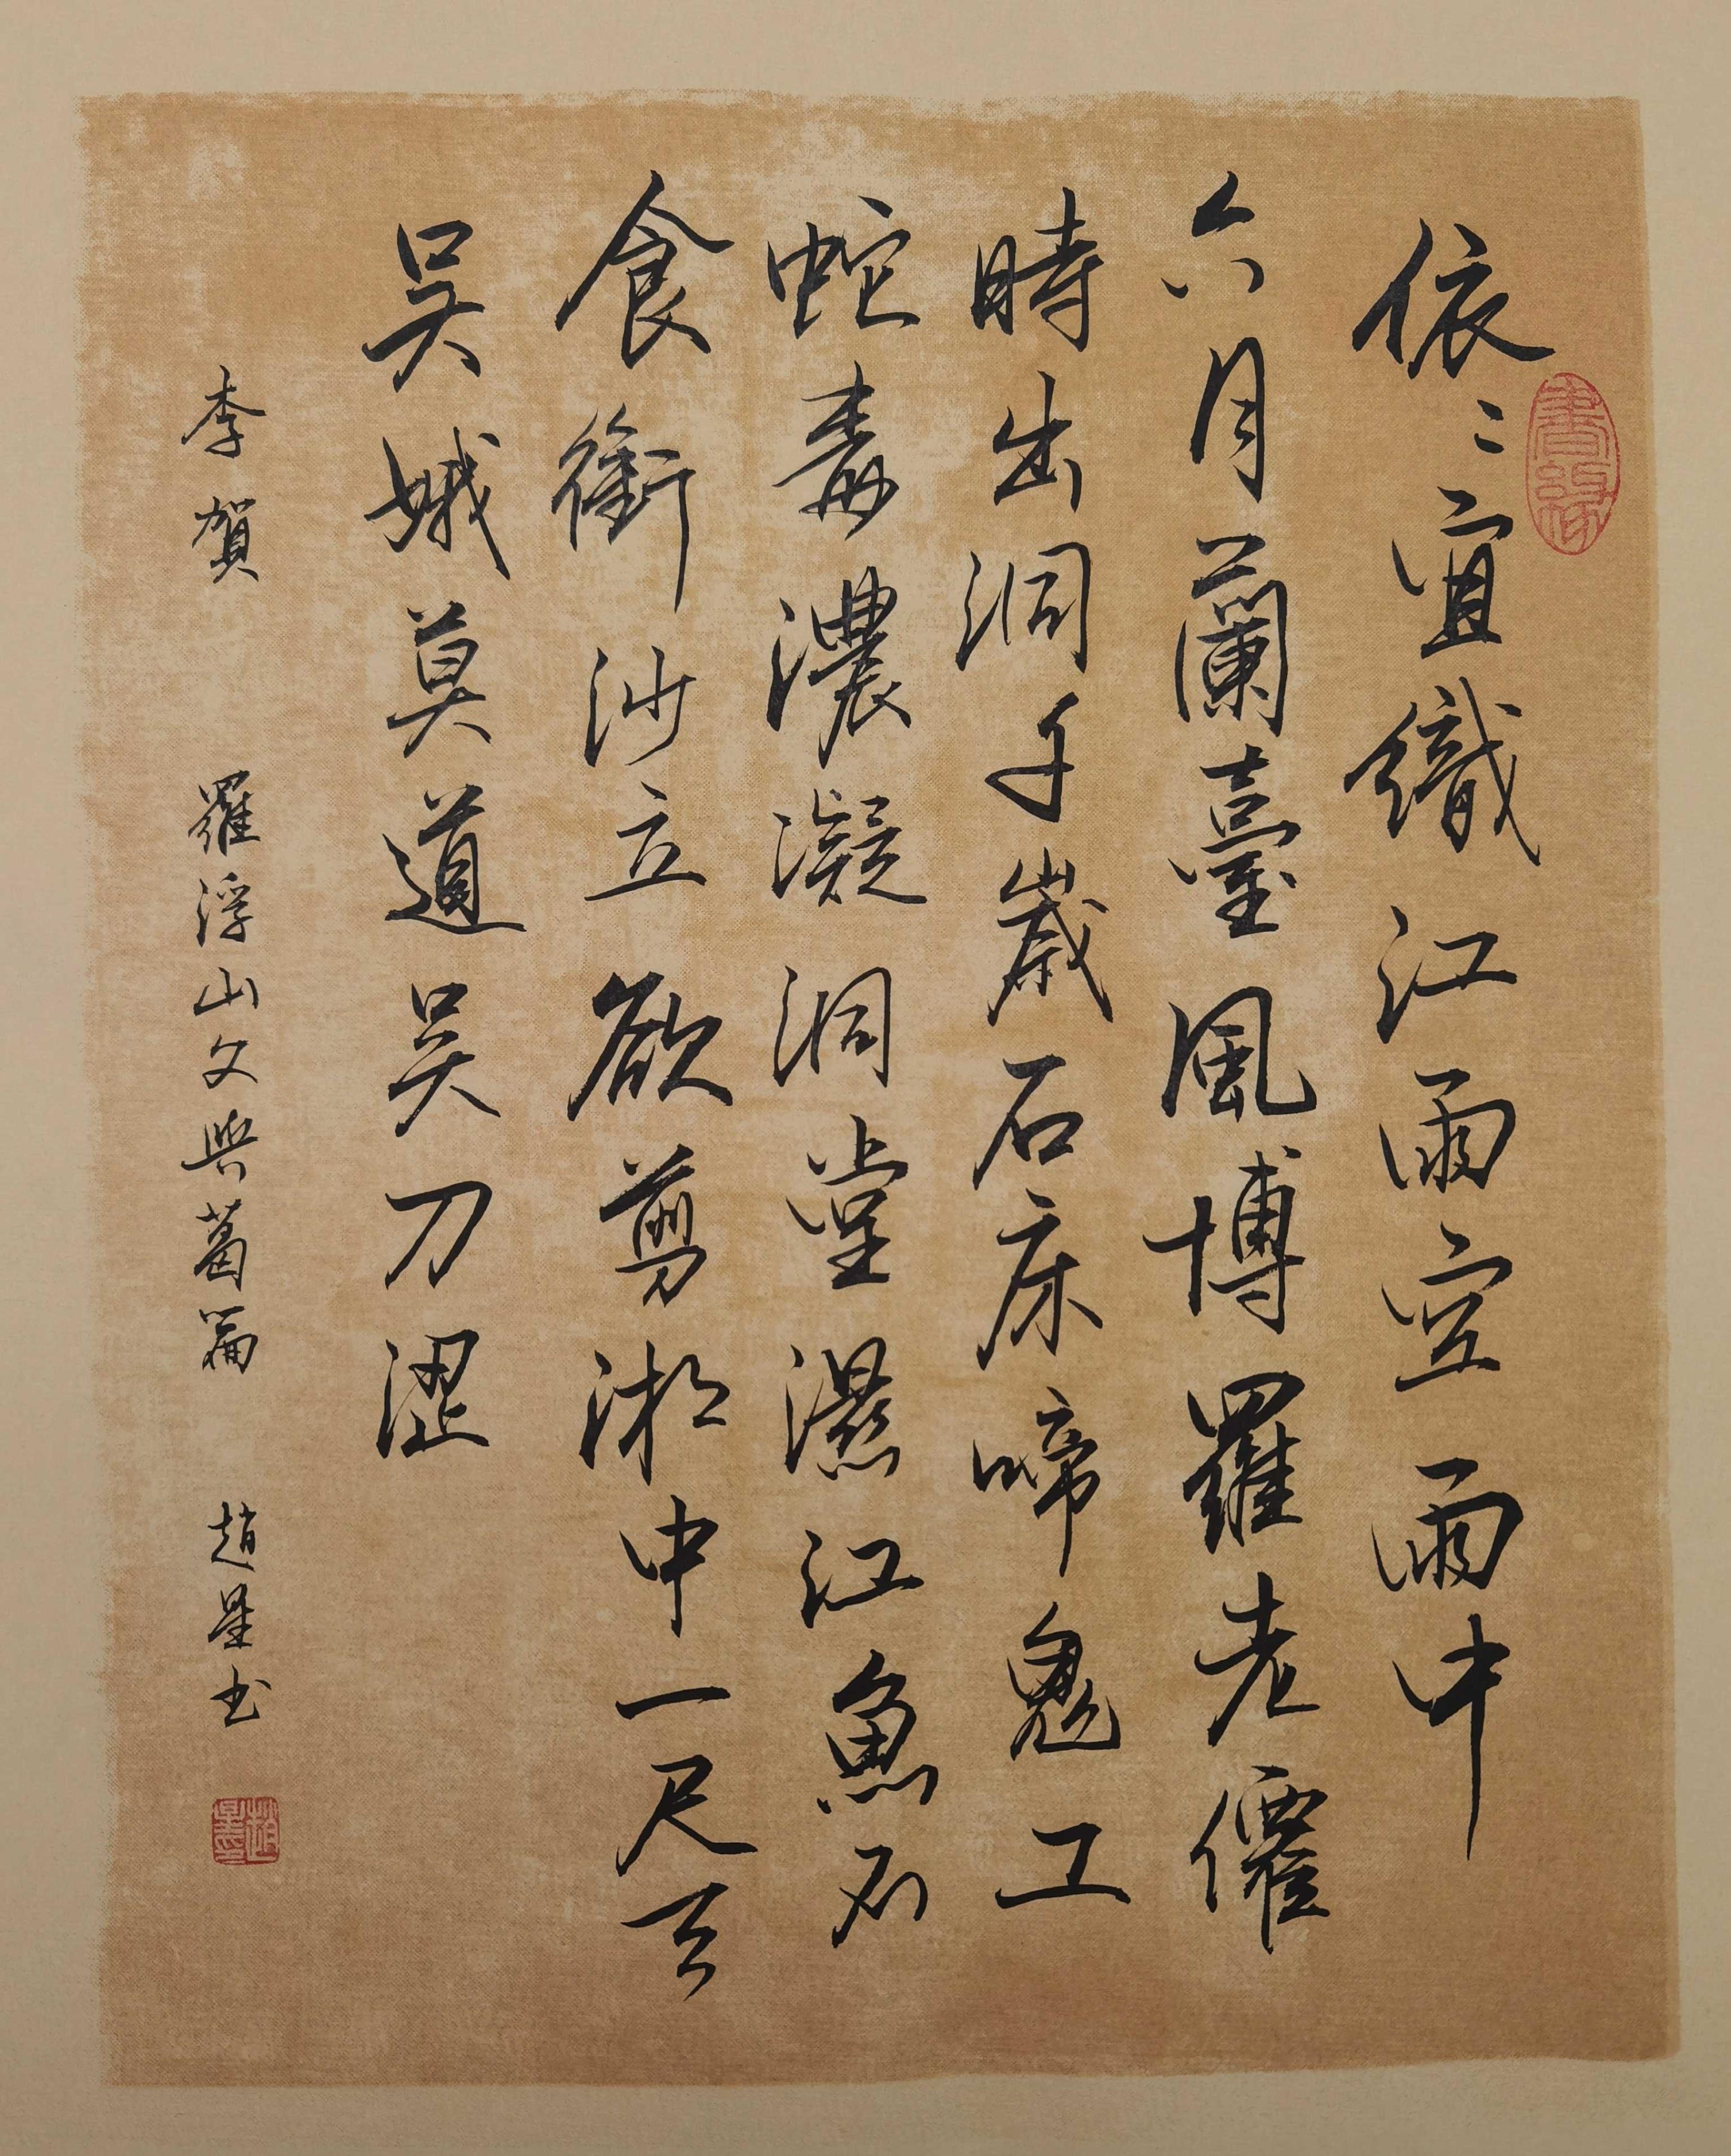 依〻宜織江雨空雨中
六月蘭臺風博羅老僊
時出洞千歲石床啼鬼工
蛇毒濃凝洞堂濕江魚不
食銜沙立欲剪湘中一尺天
吳娥莫道吳刀澀
李賀 羅浮山父與葛篇 趙星书